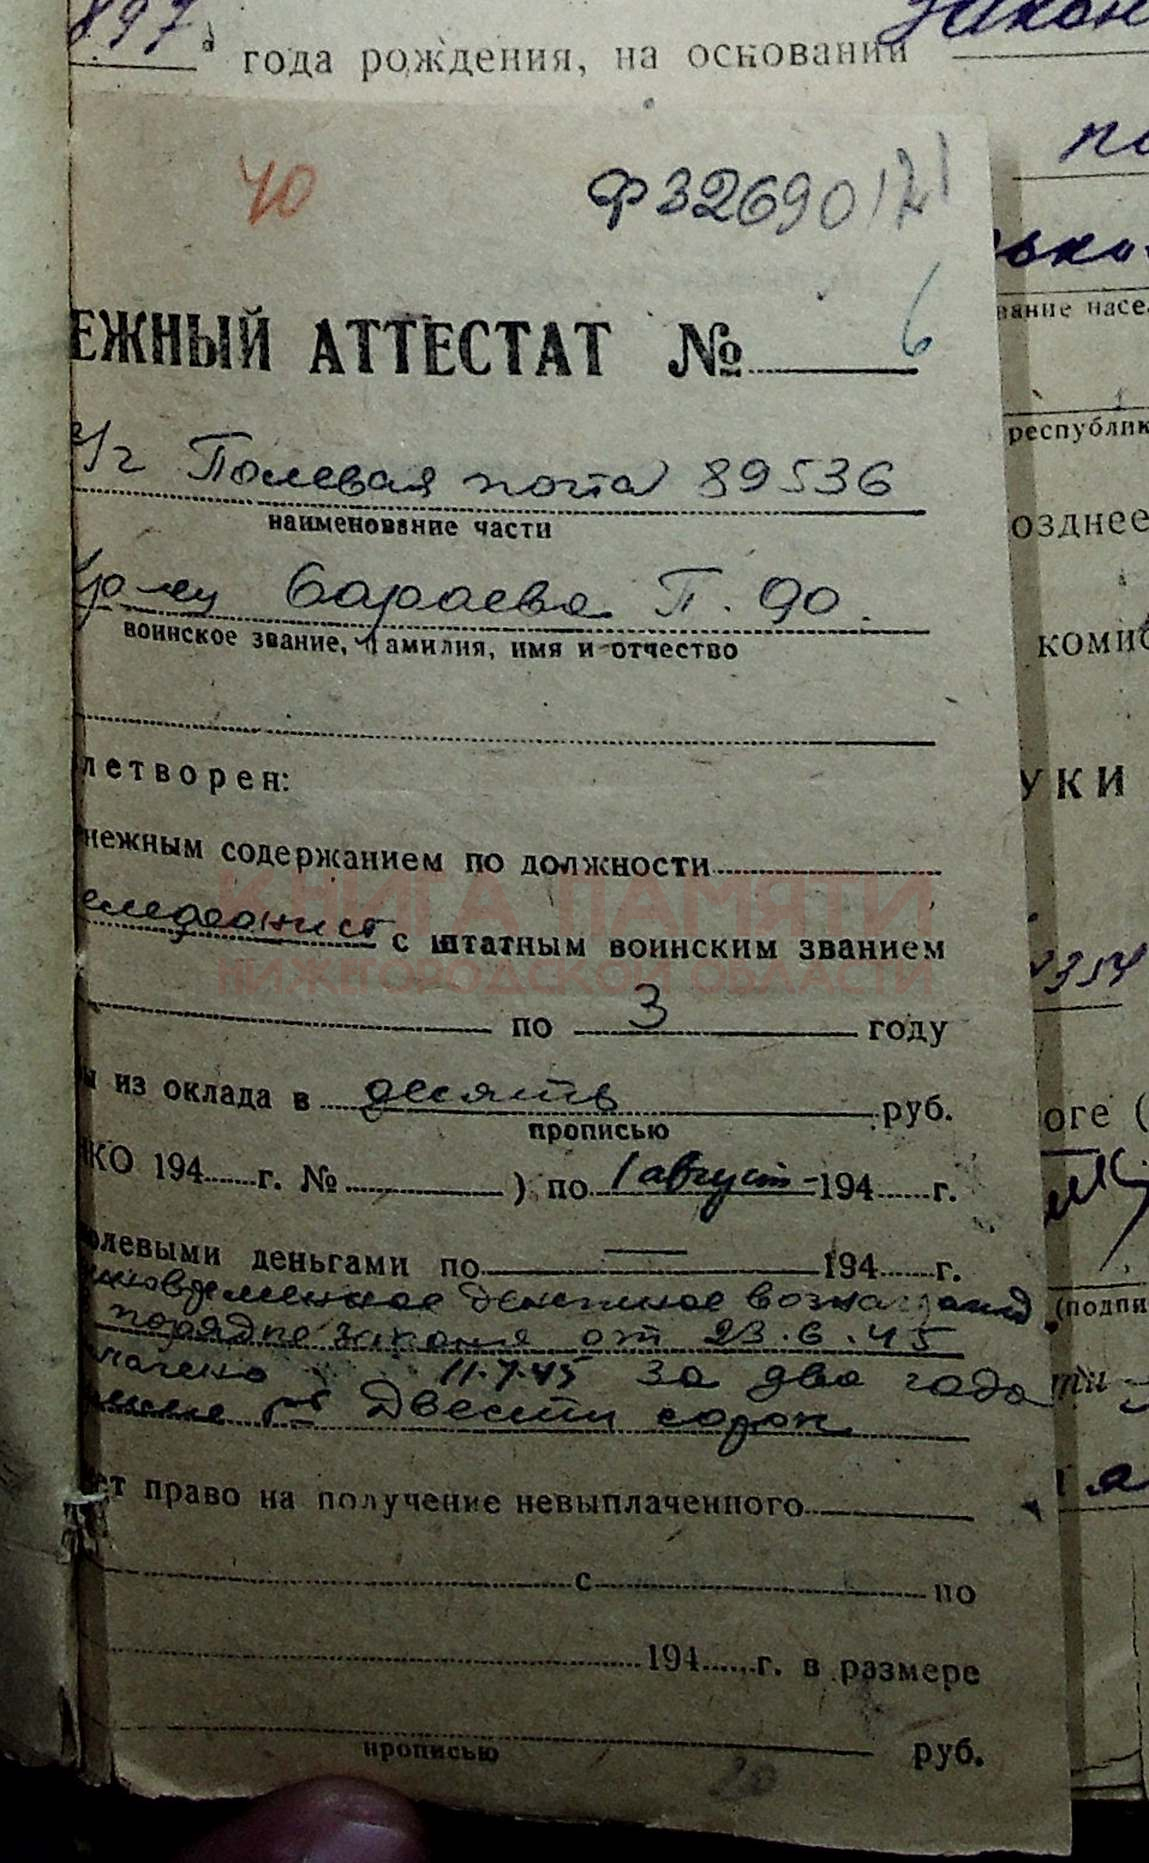 897 года рождения, на основании закон
40 Ф326901
ЕЖНЫЙ АТТЕСТАТ № 6
ание насе
/ч Полевая почта 89536
наименование части
республик
Бараева П. Ф.
озднее
воинское звание, фамилия, имя и отчество
коми
летворен:
УКИ
нежным содержанием по должности
КНИГА ПАМЯТИ
с штатным воинским званием
НИЖЕГОРОДСКОЙ ОБЛАСТИ
354
по 3 году
из оклада в десять руб.
оге (
прописью
КО 194 г. № ) по 1 август 194 г.
олевыми деньгами по — 194 г.
новременное денежное вознаграждение
(подпи
порядке закона от 23.6.45
лачено 11.7.45 за два года
Двести сорок
ет право на получение невыплаченного
с по
194 г. в размере
прописью руб.
20